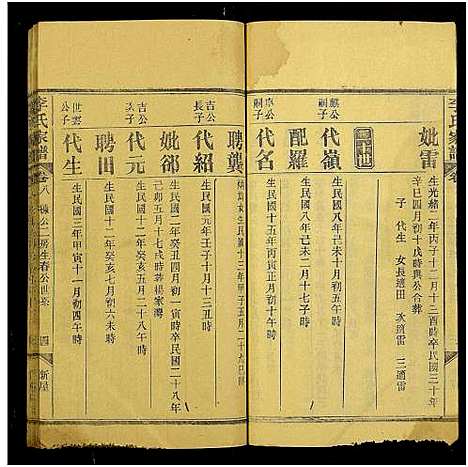 李氏家譜
妣雷
生光緒二年丙子十二月十二酉時卒民國三十年
辛巳四月初十戌時與公合葬
子 代生 女長適田 次適雷 三適雷
麒公嗣子
代嶺
生民國八年己未十月初五午時
配羅
生民國八年己未二月十七子時
嗣子
代名
生民國十五年丙寅正月初十午時
聘龔
吉公長子
代紹
生民國元年壬子十月十三丑時
妣邰
生民國二年癸丑四月初一寅時卒民國二十八年
己卯五月十七戌時葬楊家灣
吉公
代元
生民國十二年癸亥五月二十八午時
聘田
生民國十二年癸亥七月初六未時
世雲公子
代生
生民國三年甲寅十一月初四午時
李氏家譜
卷八
公二房生春公世系
四
新屋